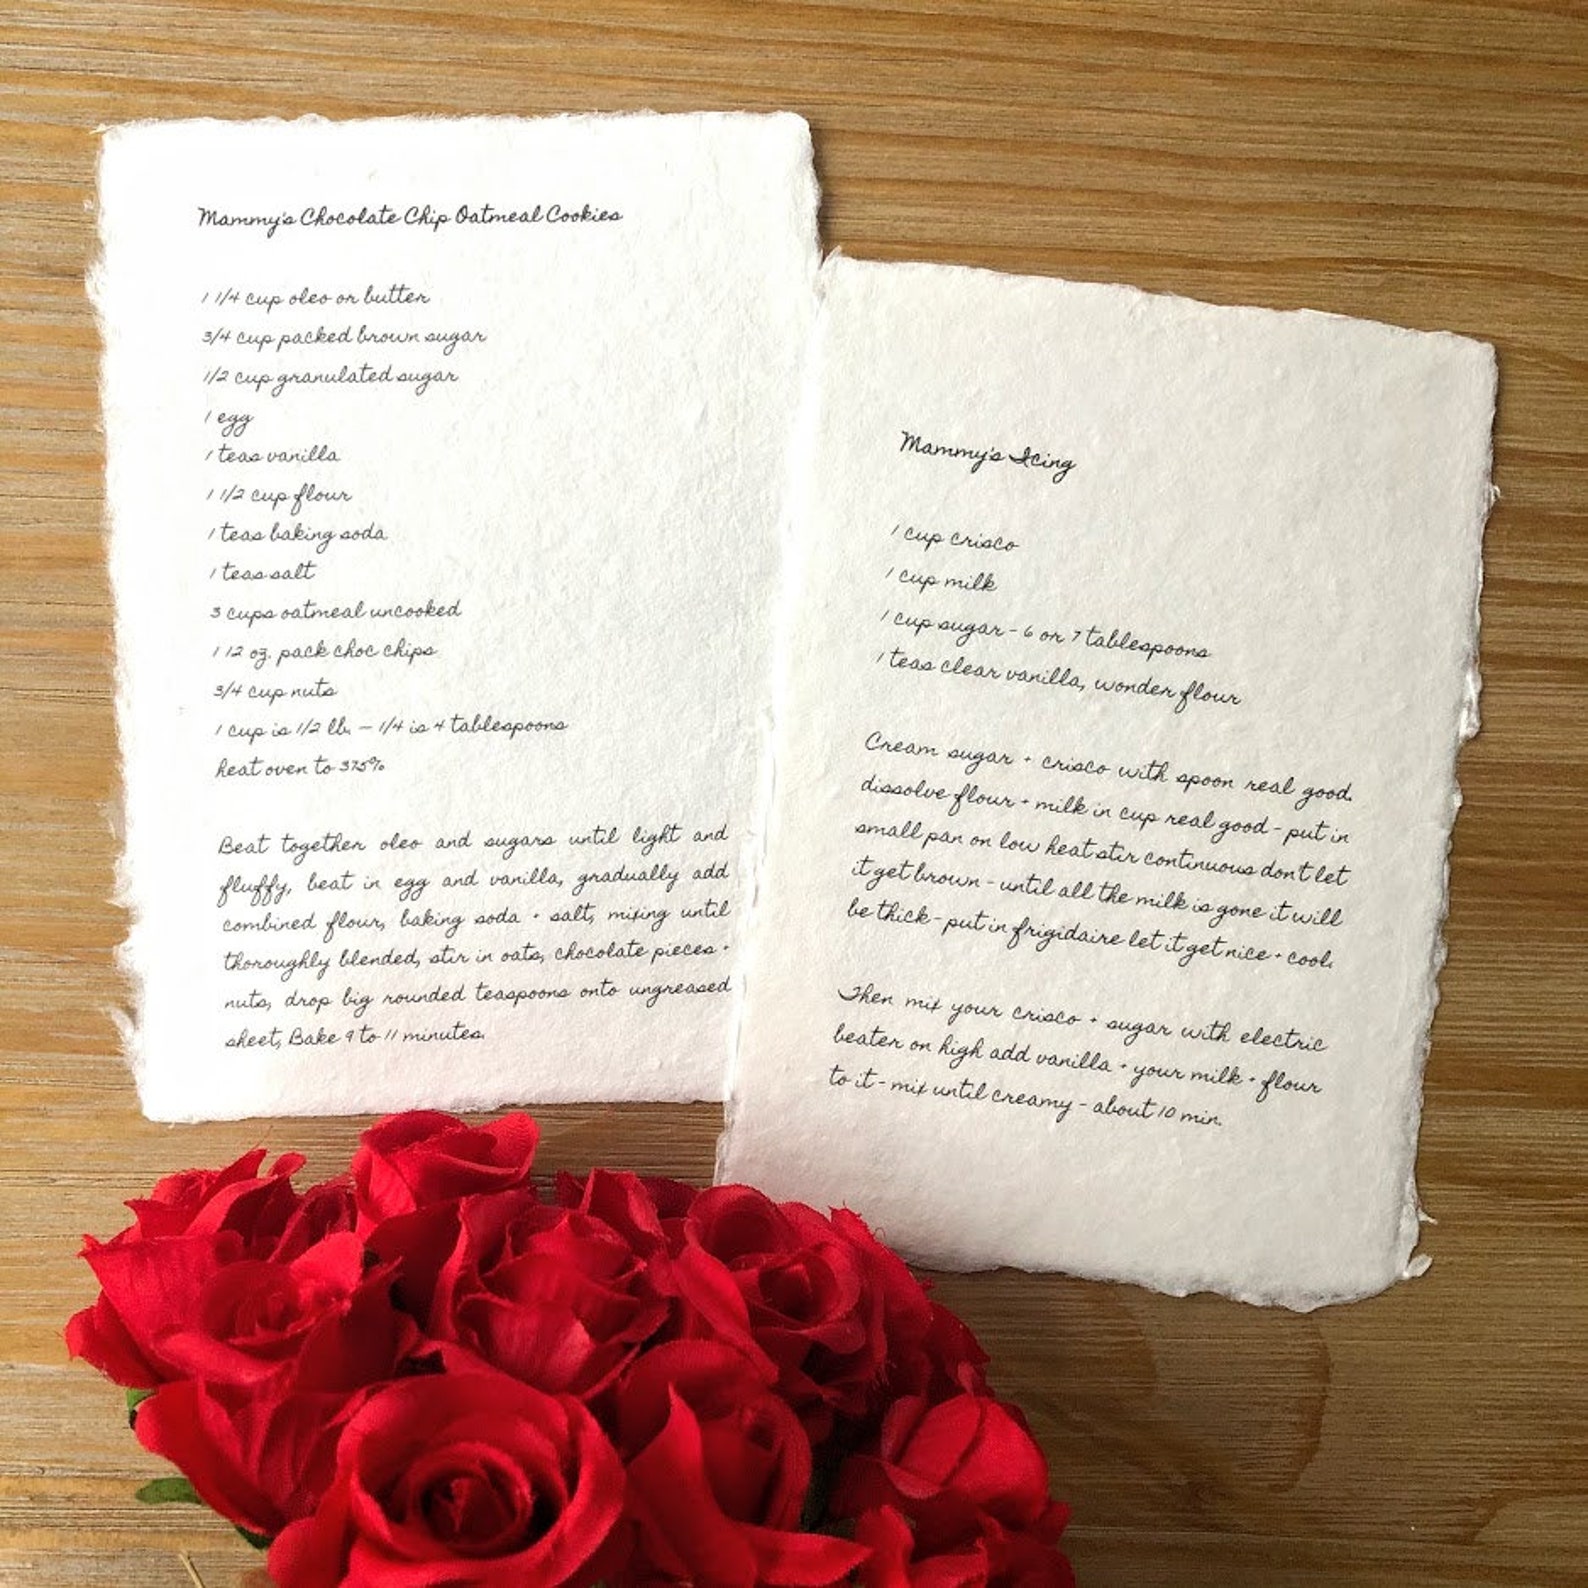 Mammy's Chocolate Chip Oatmeal Cookies
1 1/4 cup oleo or butter
3/4 cup packed brown sugar
1/2 cup granulated sugar
1 egg
1 teas vanilla
1 1/2 cup flour
1 teas baking soda
1 teas salt
3 cups oatmeal uncooked
1 12 oz. pack choc chips
3/4 cup nuts
1 cup is 1/2 lb. - 1/4 is 4 tablespoons
heat oven to 375%
Beat together oleo and sugars until light and
fluffy, beat in egg and vanilla, gradually add
combined flour, baking soda + salt, mixing until
thoroughly blended, stir in oats, chocolate pieces +
nuts, drop big rounded teaspoons onto ungreased
sheet, Bake 9 to 11 minutes.
Mammy's Icing
1 cup crisco
1 cup milk
1 cup sugar - 6 or 7 tablespoons
1 teas clear vanilla, wonder flour
Cream sugar + crisco with spoon real good.
dissolve flour + milk in cup real good - put in
small pan on low heat stir continuous don't let
it get brown - until all the milk is gone it will
be thick - put in frigidaire let it get nice + cool.
Then mix your crisco + sugar with electric
beater on high add vanilla + your milk + flour
to it - mix until creamy - about 10 min.